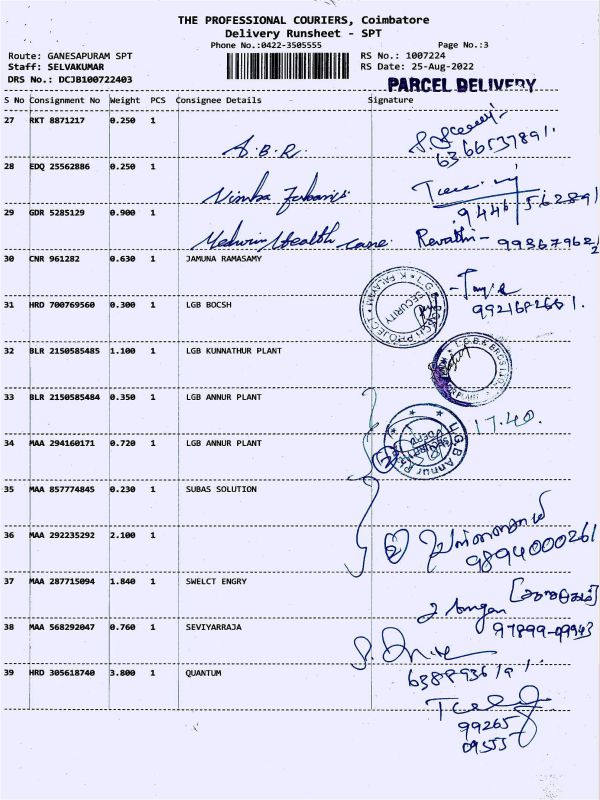 THE PROFESSIONAL COURIERS, Coimbatore
Delivery Runsheet - SPT
Phone No.:0422-3505555 Page No.:3
Route: GANESAPURAM SPT RS No.: 1007224
Staff: SELVAKUMAR RS Date: 25-Aug-2022
DRS No.: DCJB100722403 PARCEL DELIVERY
S No Consignment No Weight PCS Consignee Details Signature
27 RKT 8871217 0.250 1
A.B.R.
28 EDQ 25562886 0.250 1
Nimba
29 GDR 5285129 0.900 1
Medwin Health care. Revathi - 99367962
30 CNR 961282 0.630 1 JAMUNA RAMASAMY
31 HRD 700769560 0.300 1 LGB BOCSH
SECURITY
32 BLR 2150585485 1.100 1 LGB KUNNATHUR PLANT
33 BLR 2150585484 0.350 1 LGB ANNUR PLANT
17.40.
34 MAA 294160171 0.720 1 LGB ANNUR PLANT
35 MAA 857774845 0.230 1 SUBAS SOLUTION
36 MAA 292235292 2.100 1
9894000261
37 MAA 287715094 1.840 1 SWELCT ENGRY
97899-09943
38 MAA 568292047 0.760 1 SEVIYARRAJA
39 HRD 305618740 3.800 1 QUANTUM
99265
09555